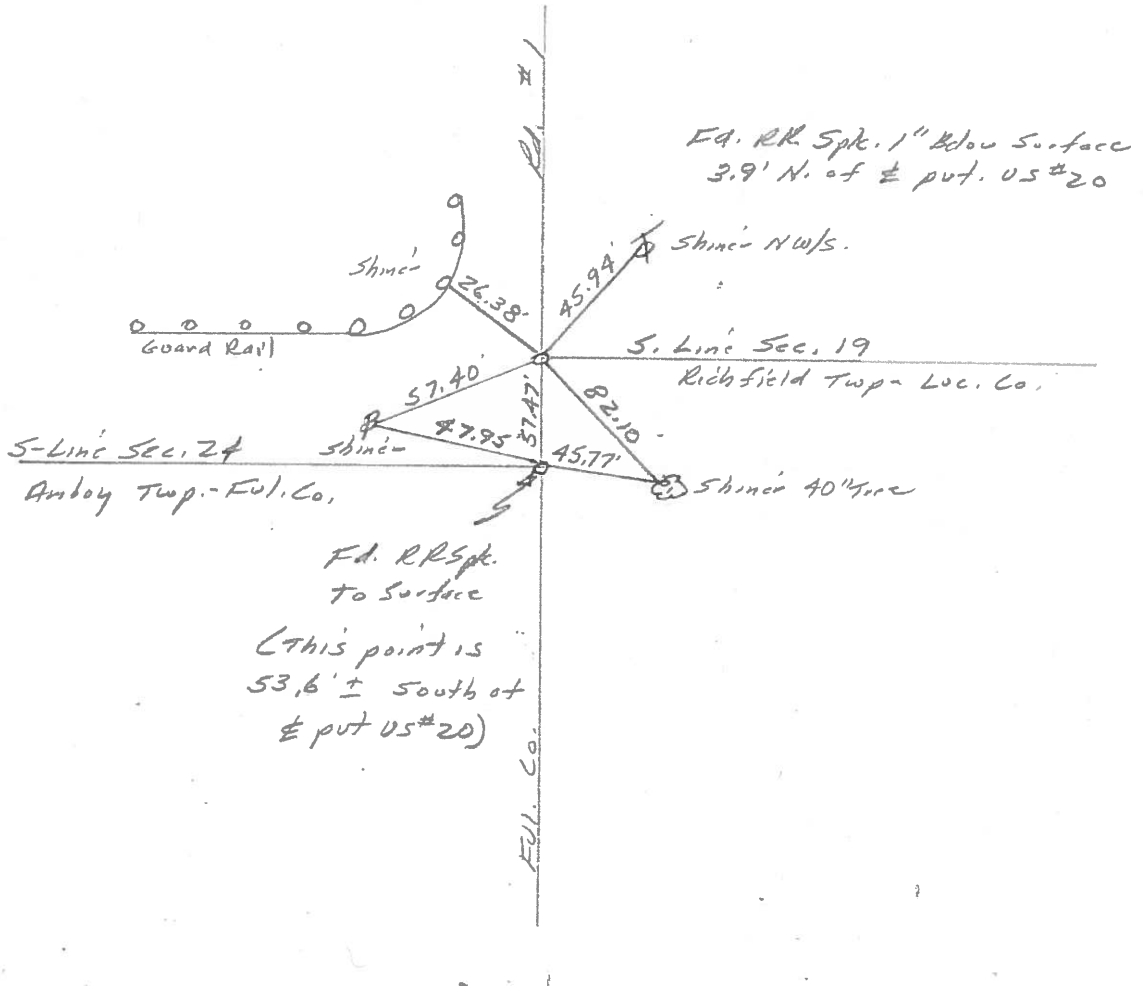 Rd. #1
Fd. RR. Spk. 1" Below Surface
3.9' N. of ℄ pvt. US #20
Shiner NW/S.
Shiner
26.38
45.94'
Guard Rail
S. Line Sec. 19
Richfield Twp - Luc. Co.
57.40'
57.47'
82.10
47.95
45.77'
S-Line Sec. 24
Shiner
Amboy Twp. - Ful. Co.
Shiner 40" Tree
Fd. RR Spk.
To Surface
(This point is
53.6' ± South of
℄ pvt US #20)
Ful. Co.